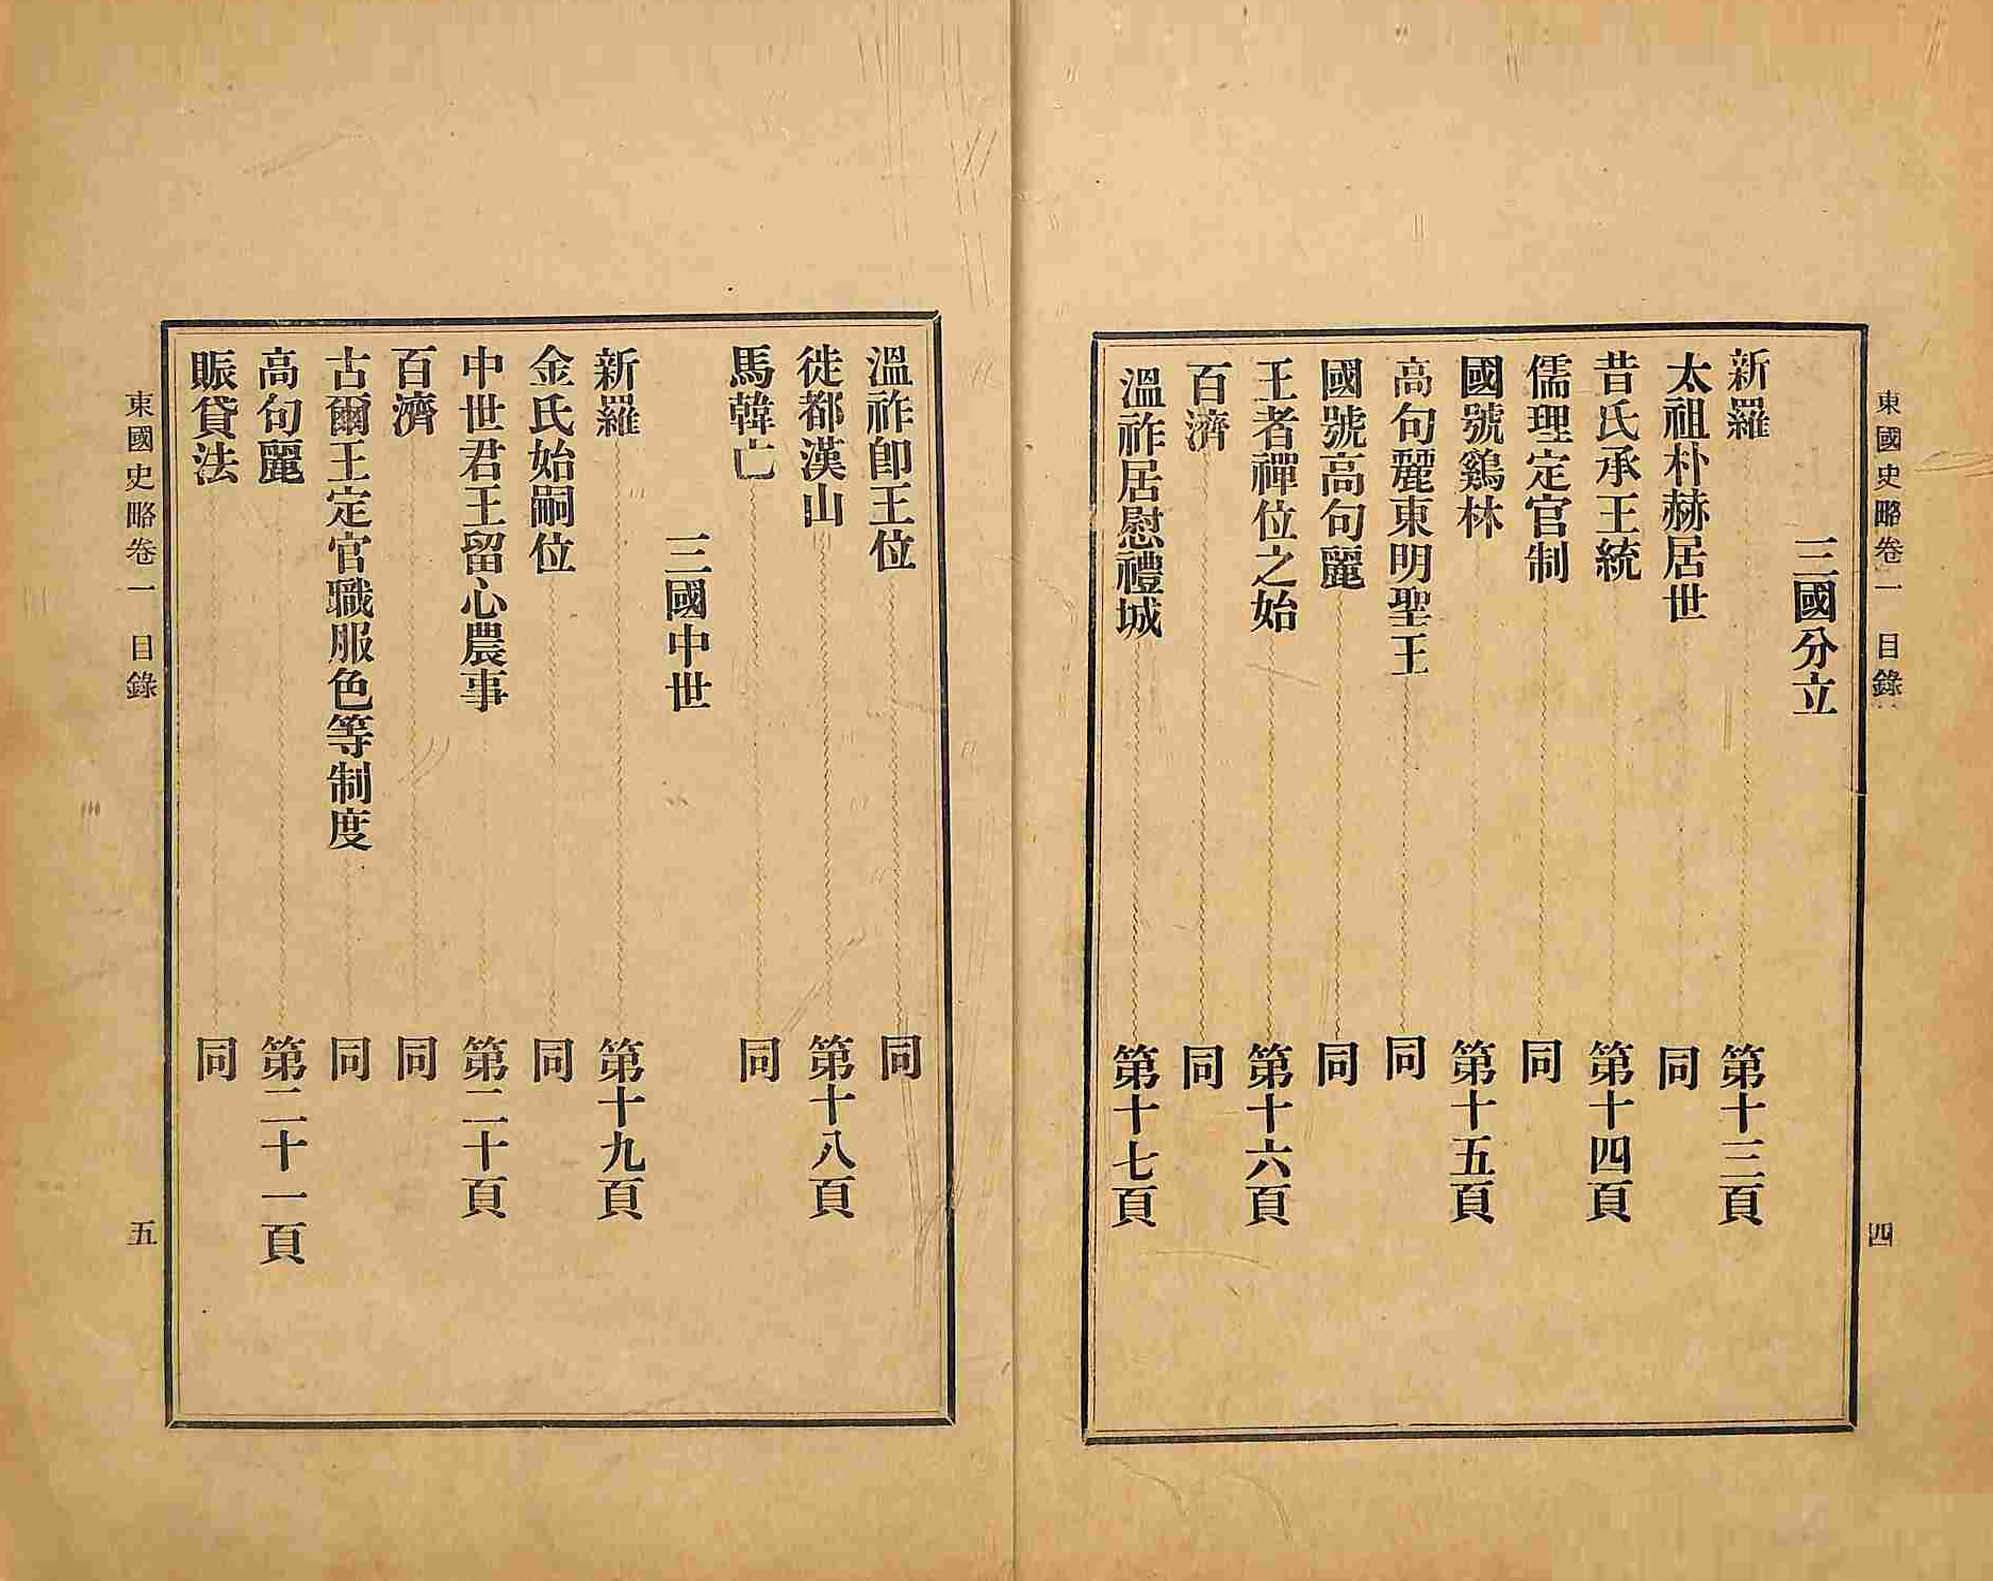 東國史略卷一 目錄 四
三國分立
新羅 第十三頁
太祖朴赫居世 同
昔氏承王統 第十四頁
儒理定官制 同
國號鷄林 第十五頁
高句麗東明聖王 同
國號高句麗 同
王者禪位之始 第十六頁
百濟 同
溫祚居慰禮城 第十七頁
溫祚卽王位 同
徙都漢山 第十八頁
馬韓亡 同
三國中世
新羅 第十九頁
金氏始嗣位 同
中世君王留心農事 第二十頁
百濟 同
古爾王定官職服色等制度 同
高句麗 第二十一頁
賑貸法 同
東國史略卷一 目錄 五